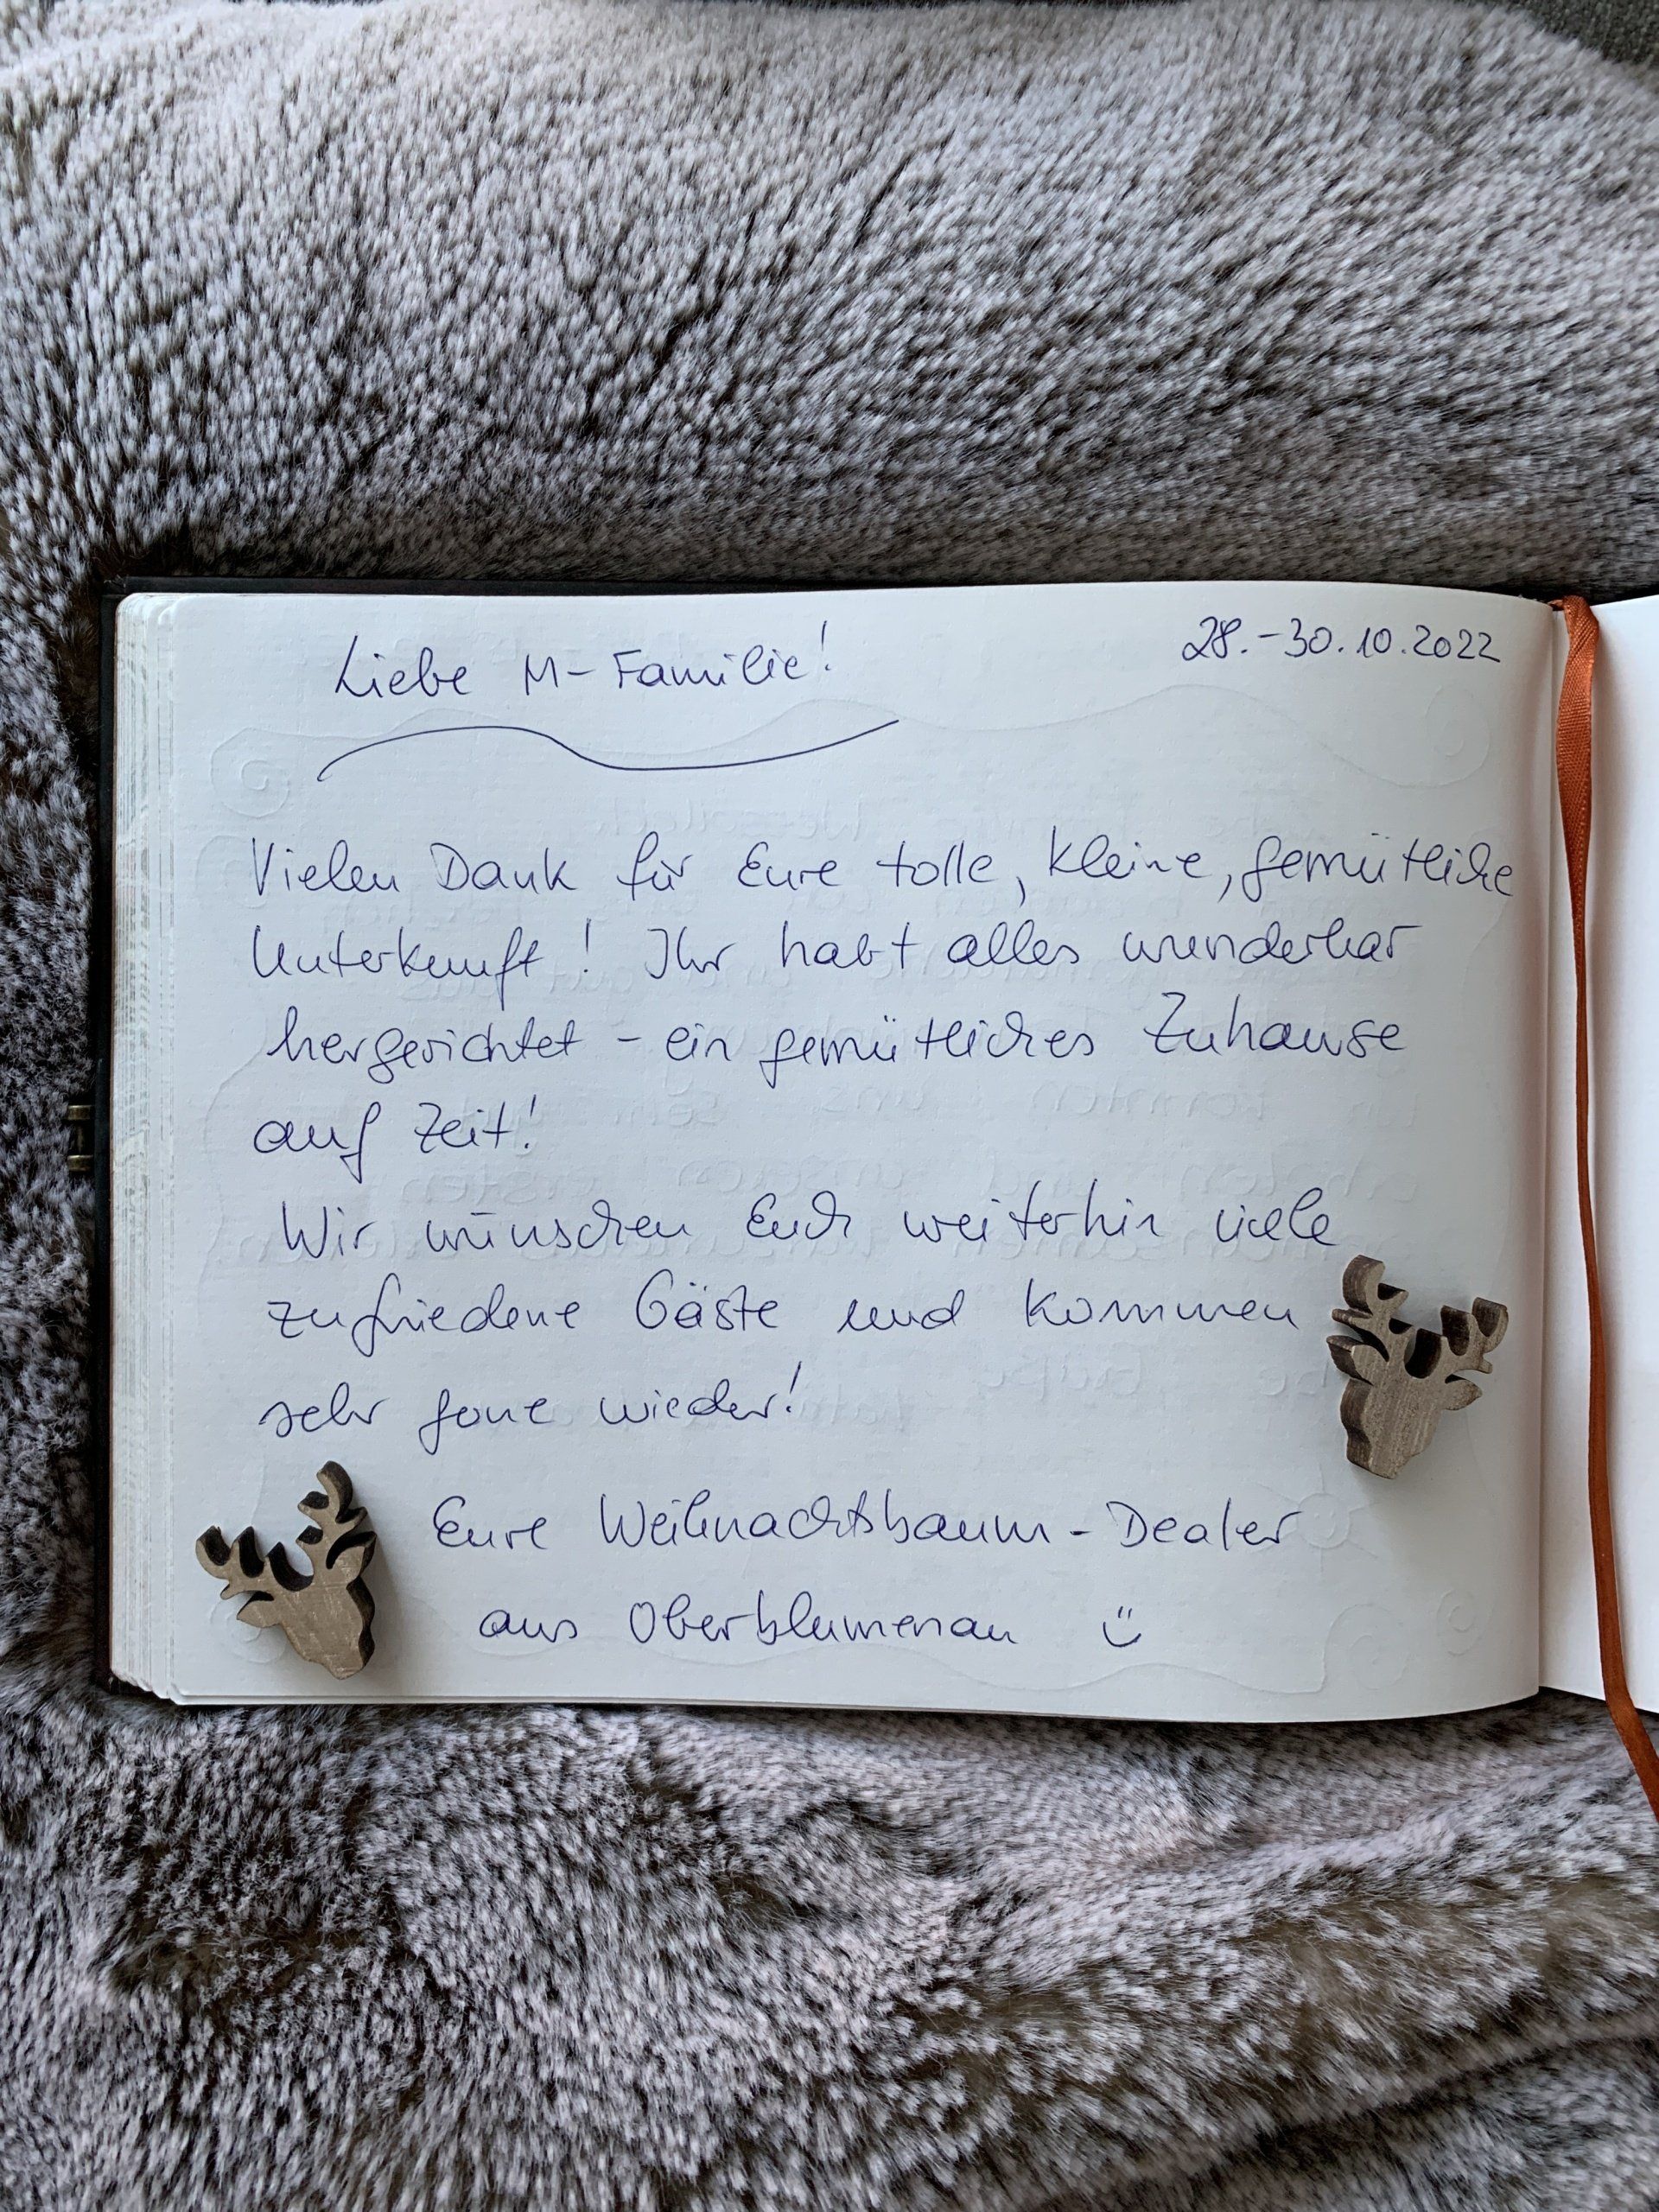 28.-30.10.2022
Liebe M-Familie!
Vielen Dank für Eure tolle, kleine, gemütliche
Unterkunft! Ihr habt alles wunderbar
hergerichtet - ein gemütliches Zuhause
auf Zeit!
Wir wünschen Euch weiterhin viele
zufriedene Gäste und kommen
sehr gerne wieder!
Eure Weihnachtsbaum-Dealer
aus Oberblumenau ü